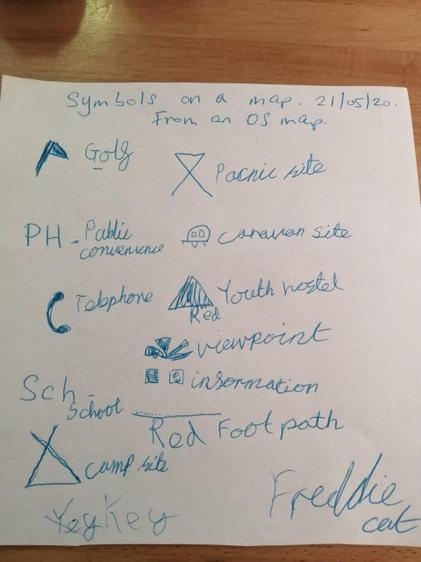 Symbols on a map. 21/05/20.
From an OS map.
Golf
Pacnic site
PH - Public
convenience
caravan site
Telephone
Youth hostel
Red
viewpoint
Sch - School
insormation
Red Footpath
camp site
Key
Freddie